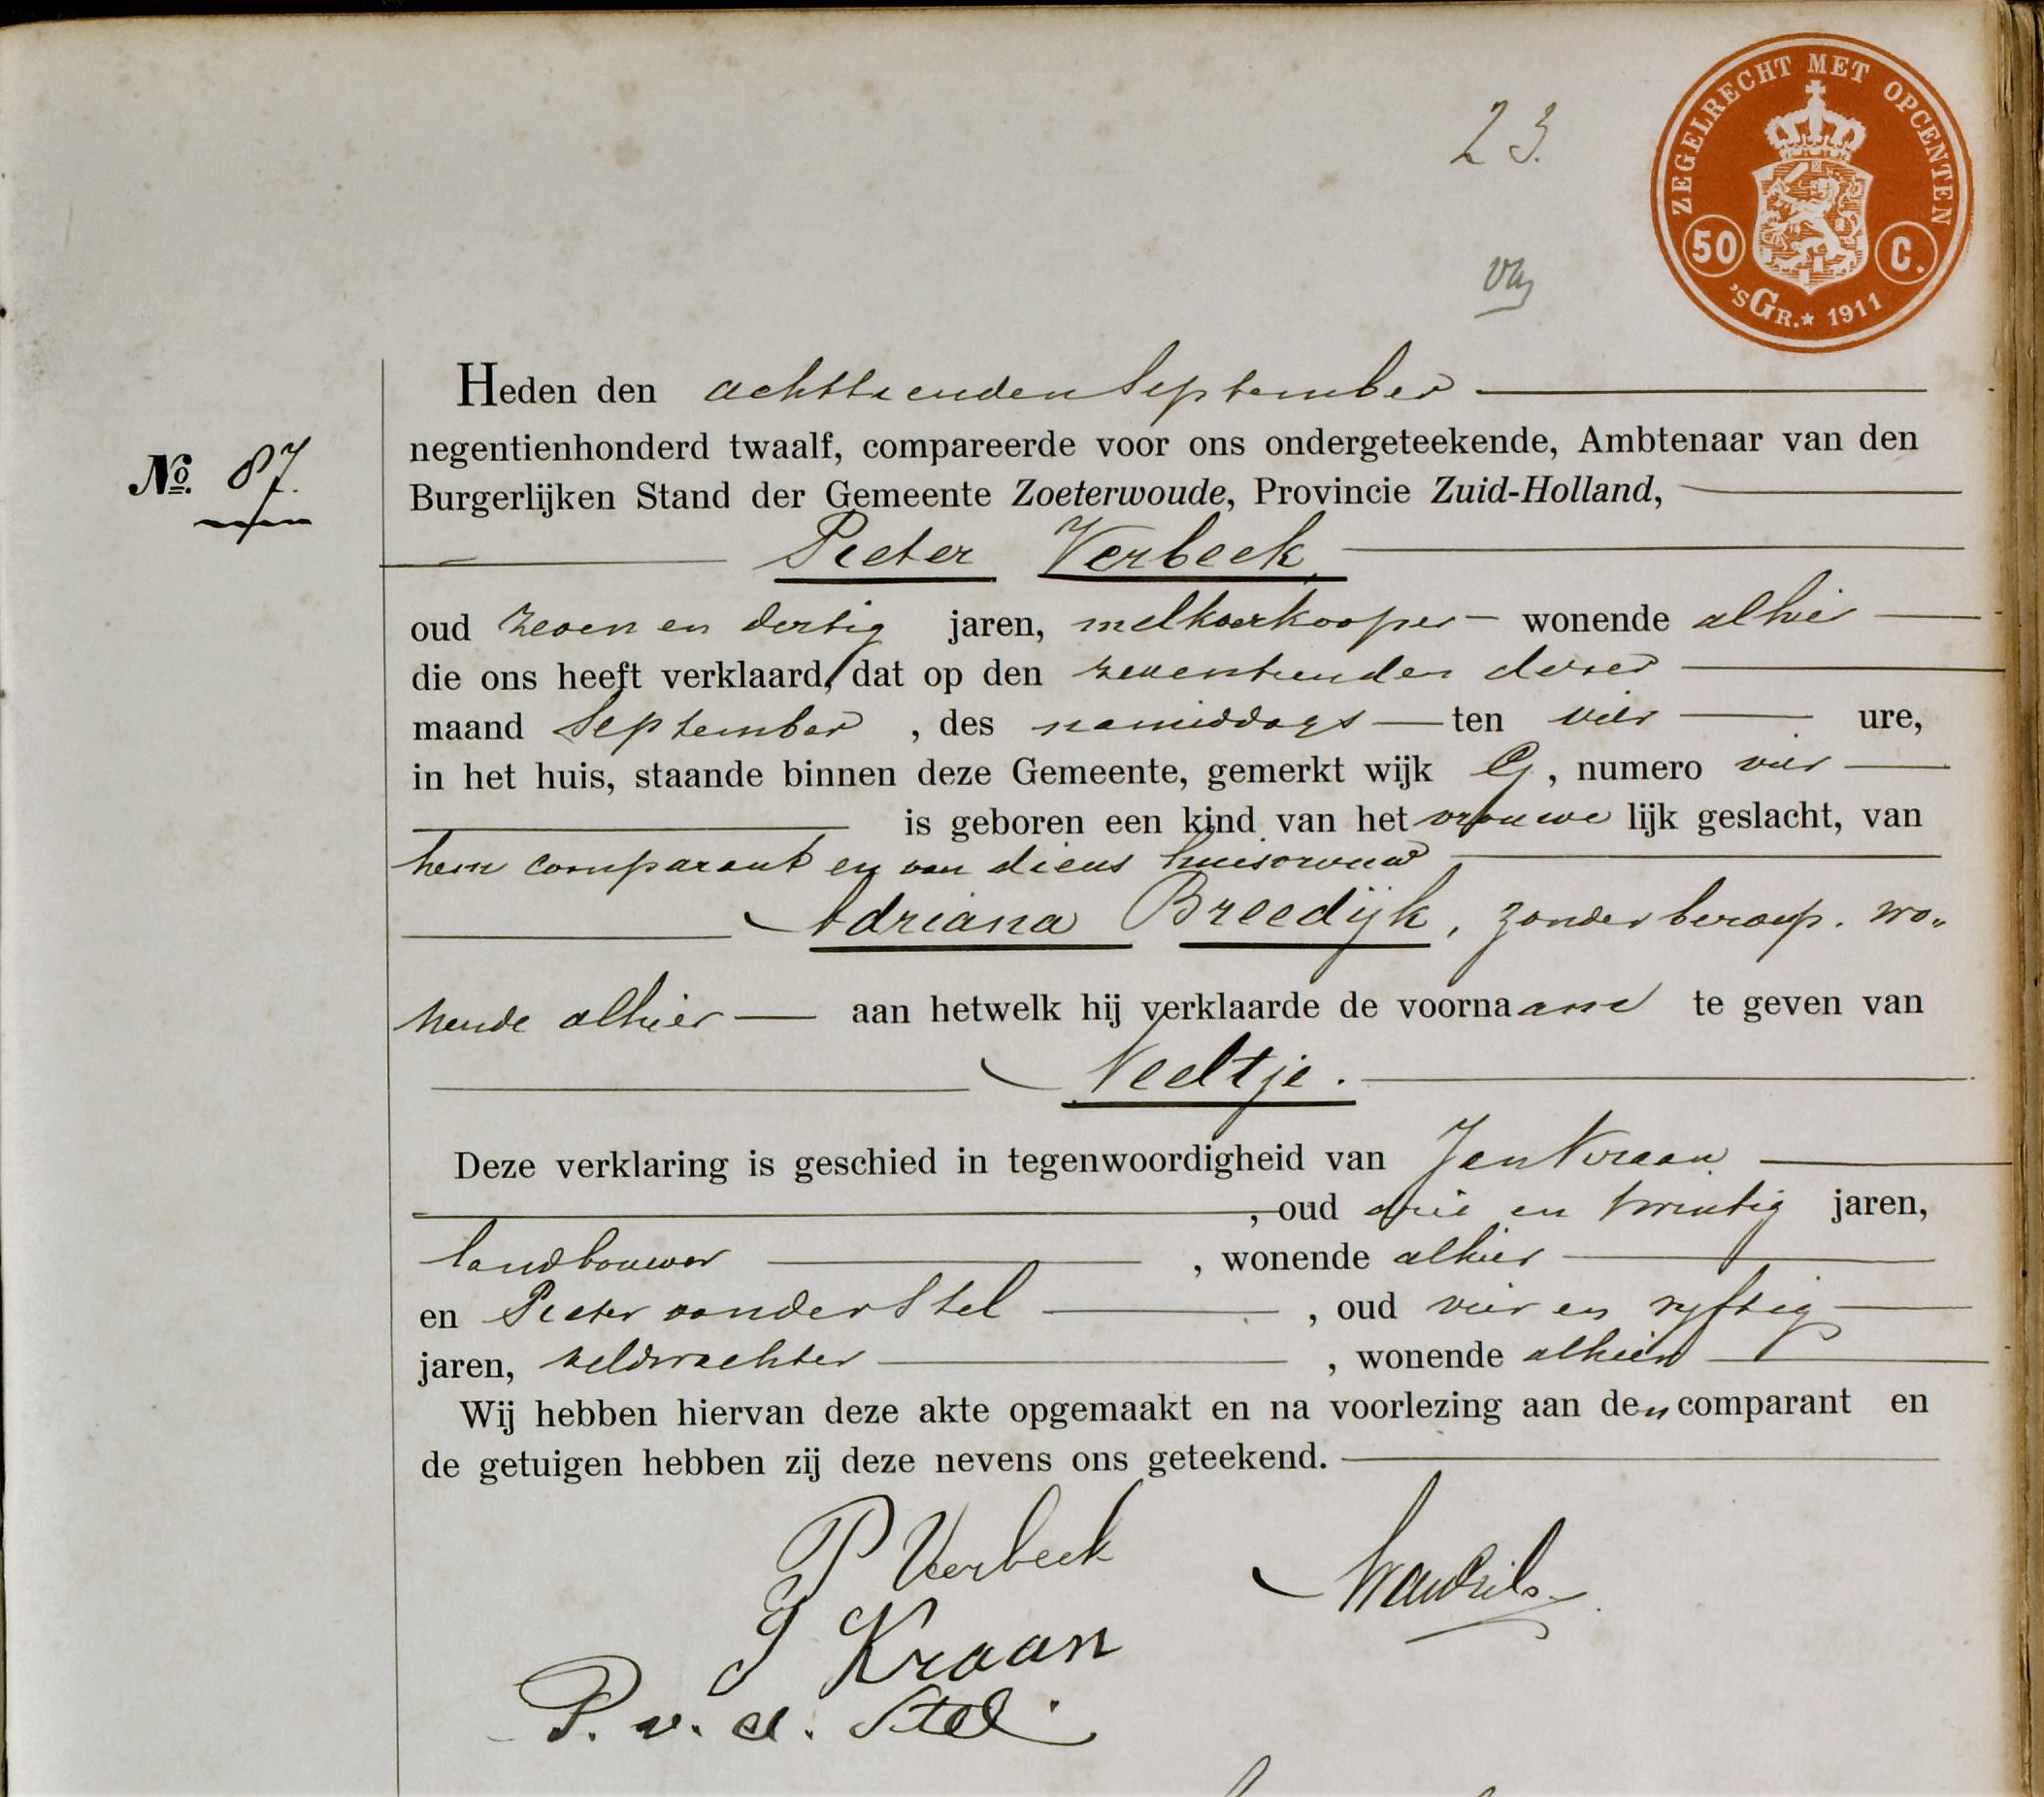 23.
ZEGELRECHT MET OPCENTEN
50 C.
'S GR. * 1911
Heden den achttienden September
negentienhonderd twaalf, compareerde voor ons ondergeteekende, Ambtenaar van den
No. 87.
Burgerlijken Stand der Gemeente Zoeterwoude, Provincie Zuid-Holland,
Pieter Verbeek,
oud zeven en dertig jaren, melkverkooper wonende alhier
die ons heeft verklaard, dat op den zeventienden dezer
maand September, des namiddags ten vier ure,
in het huis, staande binnen deze Gemeente, gemerkt wijk G, numero vier
is geboren een kind van het vrouwelijk geslacht, van
hem comparant en van diens huisvrouw
Adriana Breedijk, zonder beroep. wo„
nende alhier aan hetwelk hij verklaarde de voornaam te geven van
Neeltje.
Deze verklaring is geschied in tegenwoordigheid van Jan Kraan
, oud drie en twintig jaren,
landbouwer, wonende alhier
en Pieter van der Stel, oud vier en vyftig
jaren, veldwachter, wonende alhier
Wij hebben hiervan deze akte opgemaakt en na voorlezing aan den comparant en
de getuigen hebben zij deze nevens ons geteekend.
P Verbeek
J Kraan
P. v. d. Stel.